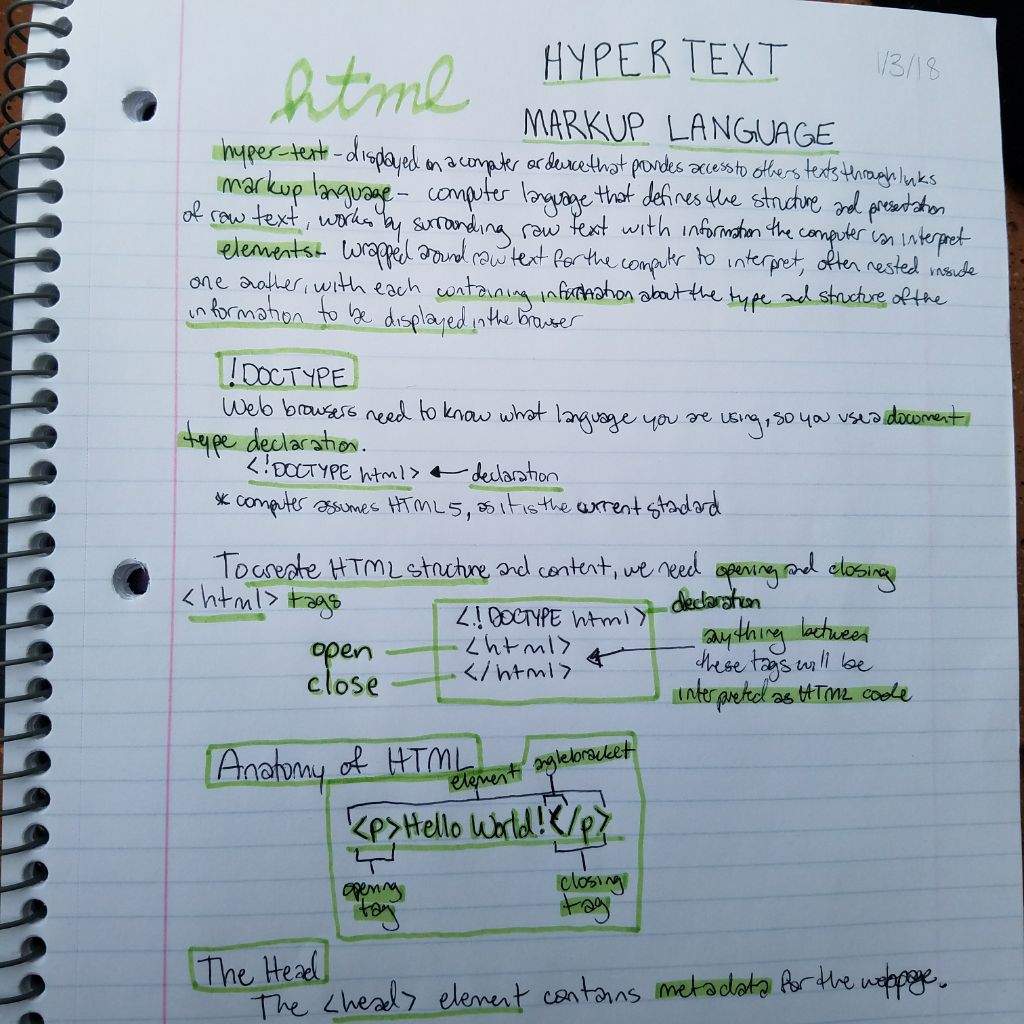 html
HYPER TEXT
1/3/18
MARKUP LANGUAGE
hyper-text - displayed on a computer or device that provides access to others texts through links
markup language - computer language that defines the structure and presentation
of raw text, works by surrounding raw text with information the computer can interpret
elements - wrapped around raw text for the computer to interpret, often nested inside
one another, with each containing information about the type and structure of the
information to be displayed in the browser
!DOCTYPE
Web browsers need to know what language you are using, so you use a document
type declaration.
<!DOCTYPE html> ← declaration
* computer assumes HTML 5, as it is the current standard
To create HTML structure and content, we need opening and closing
<html> tags
<!DOCTYPE html> declaration
open <html> anything between
close </html> these tags will be
interpreted as HTML code
Anatomy of HTML
element anglebracket
<p>Hello World!</p>
opening closing
tag tag
The Head
The <head> element contains metadata for the webpage.